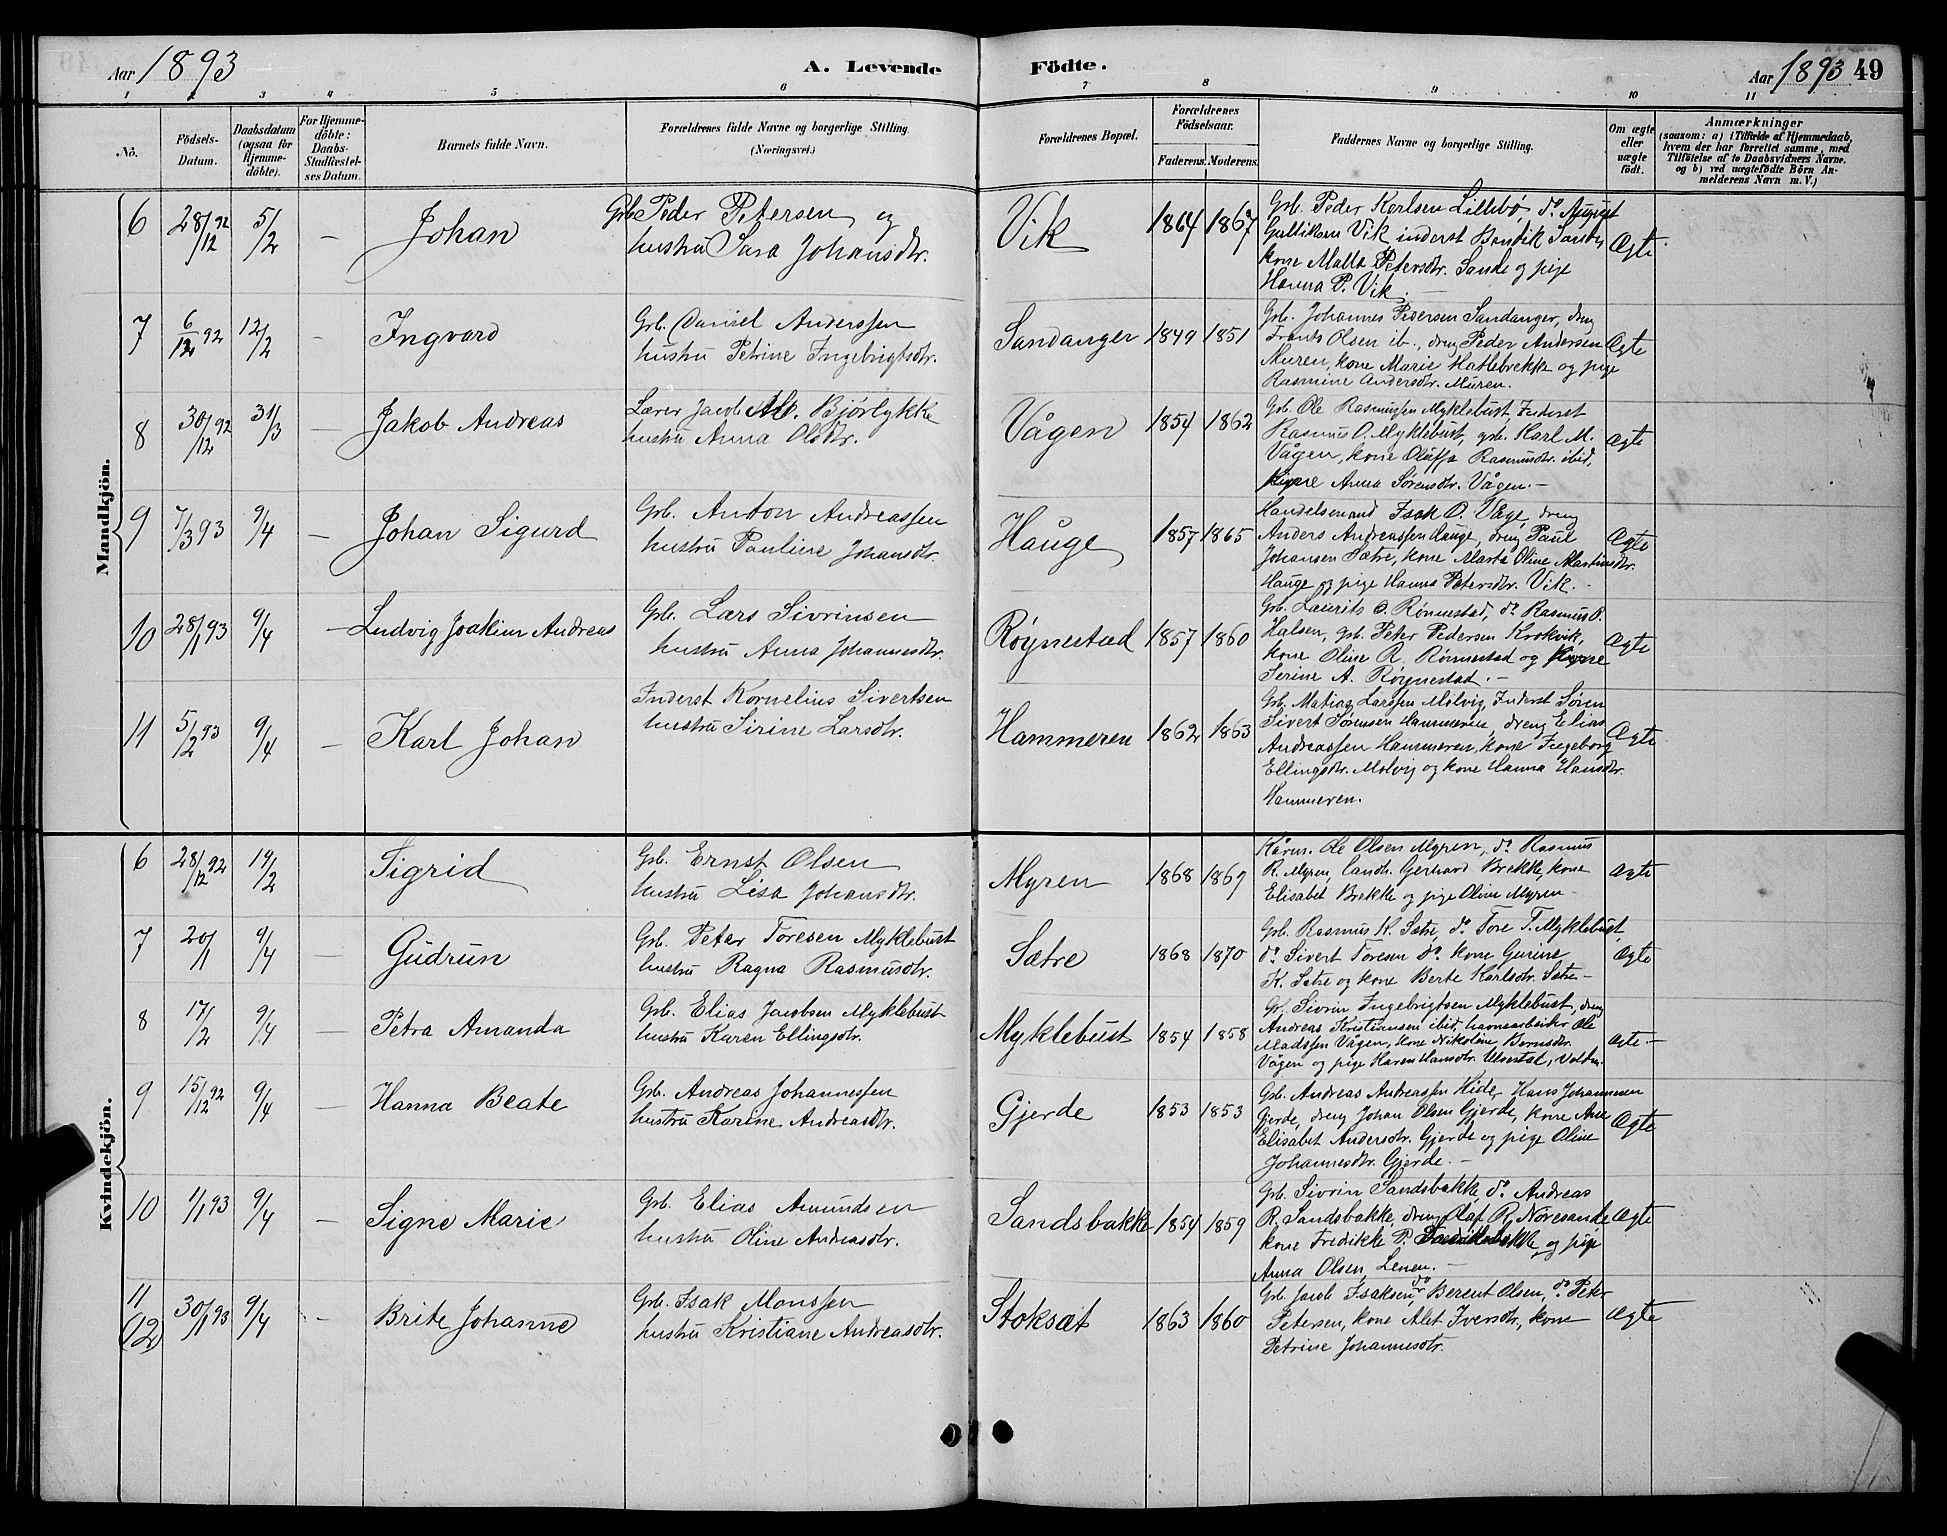 Aar 1893
A. Levende Födte.
Aar 1893 49
1 2 3 4 5 6 7 8 9 10 11
No.
Födsels-Datum.
Daabsdatum (ogsaa for Hjemme-döbte).
For Hjemme-döbte: Daabs-Stadfæstel-ses Datum.
Barnets fulde Navn.
Forældrenes fulde Navne og borgerlige Stilling. (Næringsvei.)
Forældrenes Bopæl.
Forældrenes Födselsaar.
Faderens. Moderens.
Faddernes Navne og borgerlige Stilling.
Om ægte eller uægte födt.
Anmærkninger
(saasom: a) i Tilfælde af Hjemmedaab, hvem der har forrettet samme, med Tilföielse af to Daabsvidners Navne, og b) ved uægtefödte Börn An-melderens Navn m. V.)
Mandkjön.
6 28/12 92 5/2 – Johan
Grb. Peder Petersen og
hustru Sara Johansdtr.
Vik 1864 1867
Grb. Peder Karlsen Lillebø, do August
Gultiksen Vik inderst Bendik Sande,
kone Malla Petersdtr. Sande og pige
Hanna P. Vik.
Ægte
7 6/12 92 12/2 – Ingvard
Grb. Daniel Anderssen
hustru Petrine Ingebrigtsdtr.
Sandanger 1849 1851
Grb. Johannes Pedersen Sandanger, dreng
Frants Olsen ib., dreng Peder Andersen
Muren, kone Marie Hatlebrekke og pige
Rasmine Andersdtr. Muren.
Ægte
8 30/12 92 31/3 – Jakob Andreas
Lærer Jacob Bjørlykke
hustru Anna Olsdtr.
Vågen 1854 1862
Grb. Ole Rasmussen Myklebust Inderst
Rasmus O. Myklebust, grb. Karl M.
Vågen, kone Oluffa Rasmusdtr. ibid,
Anna Sørensdtr. Vågen. –
Ægte
9 7/3 93 9/4 – Johan Sigurd
Grb. Anton Andreassen
hustru Pauline Johansdtr.
Hauge 1857 1865
Handelsmand Isak O. Våge, dreng
Anders Andreassen Hauge, dreng Paul
Johansen Sætre, kone Marta Oline Martinsdtr.
Hauge og pige Hanna Petersdtr. Vik. –
Ægte
10 28/1 93 9/4 – Ludvig Joakim Andreas
Grb. Lars Sivrinsen
hustru Anna Johannesdtr.
Røynestad 1857 1860
Grb. Laurits O. Rønnestad, do Rasmus P.
Halsen, grb. Peter Pedersen Krokvik,
kone Oline R. Rønnestad og
Serine A. Røynestad. –
Ægte
11 5/2 93 9/4 – Karl Johan
Inderst Kornelius Sivertsen
hustru Sirine Larsdtr.
Hammeren 1862 1863
Grb. Matias Larssen Molvig, Inderst Søren
Sivert Sørensen Hammeren, dreng Elias
Andreassen Hammeren, kone Ingeborg
Ellingsdtr. Molvig og kone Hanna Hansdtr.
Hammeren.
Ægte
Kvindekjön.
6 28/12 92 19/2 – Sigrid
Grb. Ernst Olsen
hustru Lisa Johansdtr.
Myren 1868 1869
Kårm. Ole Olsen Myren, do Rasmus
R. Myren, landh. Gerhard Brekke, kone
Elisabet Brekke og pige Oline Myren –
Ægte
7 20/1 9/4 – Gudrun
Grb. Peter Toresen Myklebust
hustru Ragna Rasmusdtr.
Sætre 1868 1870
Grb. Rasmus K. Sætre, do Tore T. Myklebust,
do Sivert Toresen do kone Gurine
K. Sætre og kone Berte Karlsdtr. Sætre –
Ægte
8 17/2 9/4 – Petra Amanda
Grb. Elias Jacobsen Myklebust
hustru Karen Ellingsdtr.
Myklebust 1854 1858
Gr. Sivrin Ingebrigtsen Myklebust, dreng
Andreas Kristiansen ibid, havnearbeider Ole
Madssen Vågen, kone Nikoline Berntsdtr.
Vågen og pige Karen Hansdtr. Ulvestad, Volden.
Ægte –
9 15/12 92 9/4 – Hanna Beate
Grb. Andreas Johannessen
hustru Karine Andreasdtr.
Gjerde 1853 1853
Grb. Andreas Andreassen Hide, Hans Johannesen
Gjerde, dreng Johan Olsen Gjerde, kone Ane
Elisabet Andersdtr. Gjerde og pige Oline
Johannesdtr. Gjerde. –
Ægte
10 1/1 93 9/4 – Signe Marie
Grb. Elias Amundsen
hustru Oline Andreasdtr.
Sandsbakke 1854 1859
Grb. Sivrin Sandsbakke, do Andreas
R. Sandsbakke, dreng Olaf R. Nøresande
kone Fredikke P. og pige
Anna Olsen, Lenen. –
Ægte
11 (12) 30/1 93 9/4 – Brite Johanne
Grb. Isak Monssen
hustru Kristiane Andreasdtr.
Stoksæt 1863 1860
Grb. Jacob Isaksen, do Berent Olsen, do Peter
Petersen, kone Alet Iversdtr., kone
Petrine Johannesdtr.
Ægte